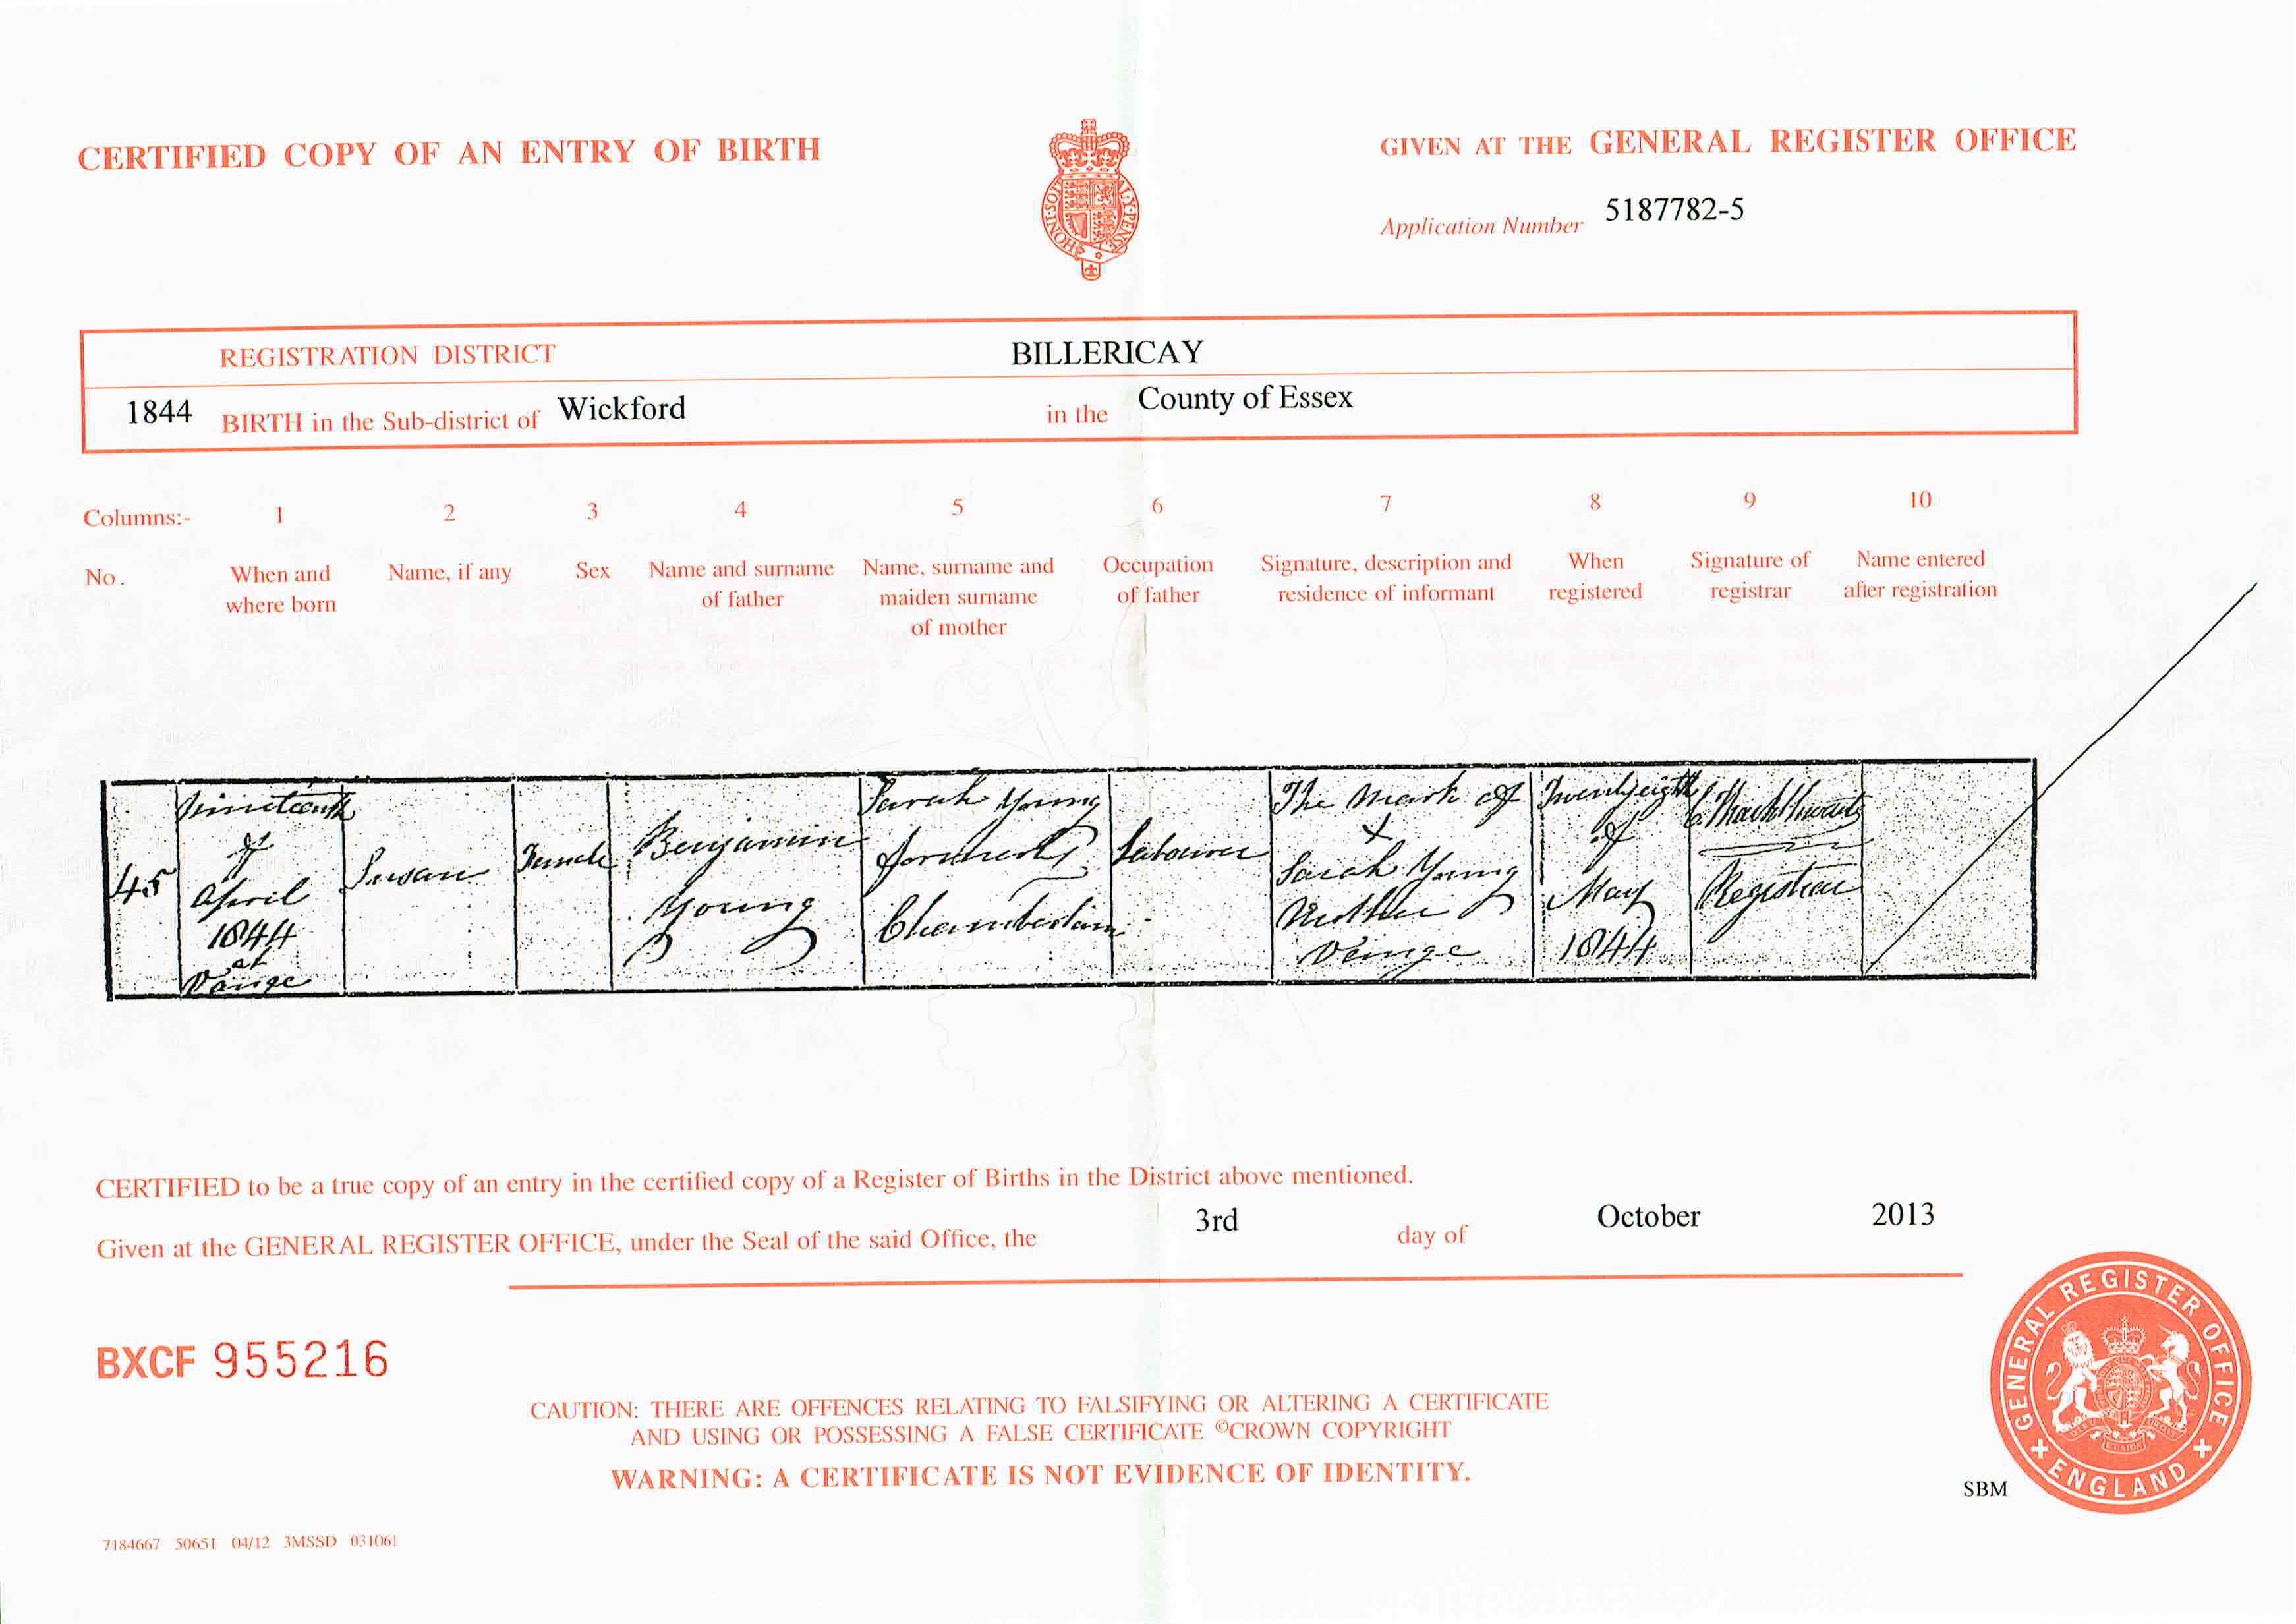 CERTIFIED COPY OF AN ENTRY OF BIRTH
GIVEN AT THE GENERAL REGISTER OFFICE
Application Number 5187782-5
REGISTRATION DISTRICT BILLERICAY
1844 BIRTH in the Sub-district of Wickford in the County of Essex
Columns:- 1 2 3 4 5 6 7 8 9 10
No. When and where born
Name, if any
Sex
Name and surname of father
Name, surname and maiden surname of mother
Occupation of father
Signature, description and residence of informant
When registered
Signature of registrar
Name entered after registration
45
Nineteenth
of
April
1844
at
Vange
Susan
Female
Benjamin
Young
Sarah Young
formerly
Chamberlain
Labourer
The Mark of
X
Sarah Young
Mother
Vange
Twentyeigth
of
May
1844
Registrar
CERTIFIED to be a true copy of an entry in the certified copy of a Register of Births in the District above mentioned.
Given at the GENERAL REGISTER OFFICE, under the Seal of the said Office, the 3rd day of October 2013
BXCF 955216
CAUTION: THERE ARE OFFENCES RELATING TO FALSIFYING OR ALTERING A CERTIFICATE
AND USING OR POSSESSING A FALSE CERTIFICATE ©CROWN COPYRIGHT
WARNING: A CERTIFICATE IS NOT EVIDENCE OF IDENTITY.
GENERAL REGISTER OFFICE
ENGLAND
SBM
7184667 50651 04/12 3MSSD 031061